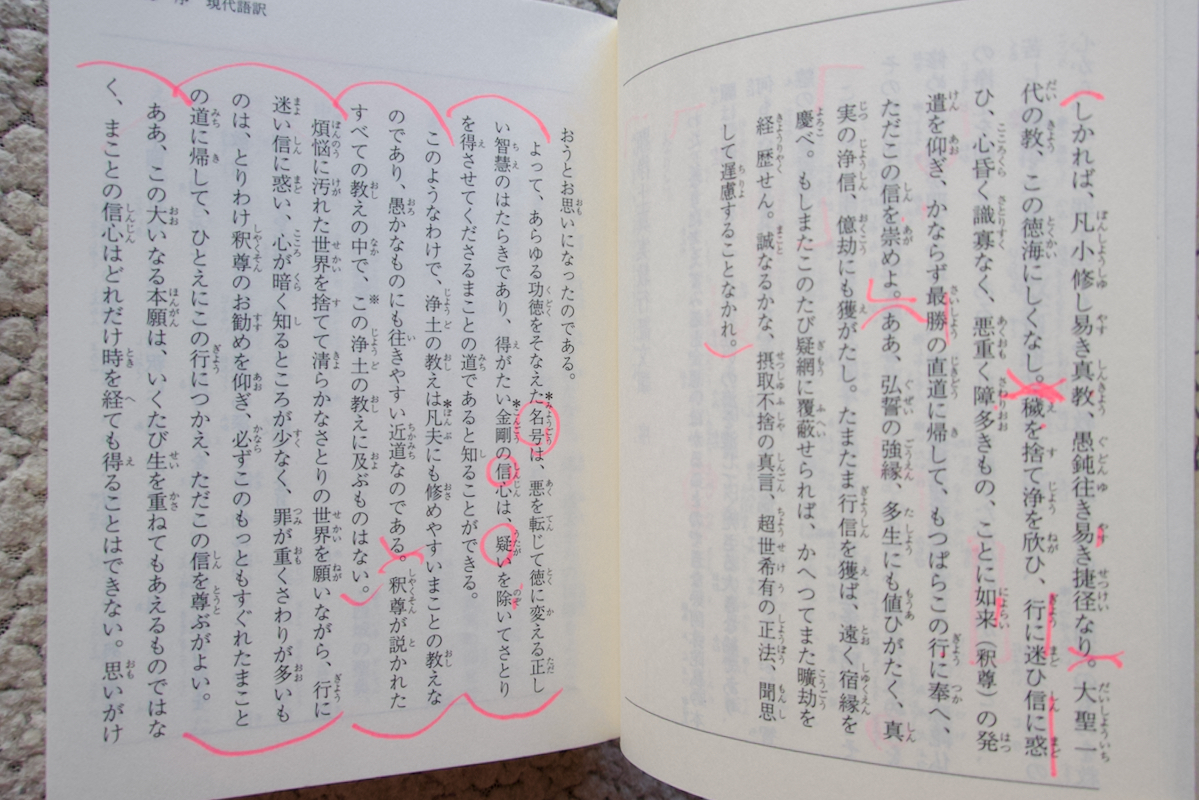 しかれば、凡小修し易き真教、愚鈍往き易き捷径なり。大聖一
代の教、この徳海にしくなし。穢を捨て浄を欣ひ、行に迷ひ信に惑
ひ、心昏く識寡なく、悪重く障多きもの、ことに如来(釈尊)の発
遣を仰ぎ、かならず最勝の直道に帰して、もつぱらこの行に奉へ、
ただこの信を崇めよ。ああ、弘誓の強縁、多生にも値ひがたく、真
実の浄信、億劫にも獲がたし。たまたま行信を獲ば、遠く宿縁を
慶べ。もしまたこのたび疑網に覆蔽せられば、かへつてまた曠劫を
経歴せん。誠なるかな、摂取不捨の真言、超世希有の正法、聞思
して遅慮することなかれ。
現代語訳
おうとお思いになったのである。
よって、あらゆる功徳をそなえた*名号は、悪を転じて徳に変える正し
い智慧のはたらきであり、得がたい*金剛の信心は、疑いを除いてさとり
を得させてくださるまことの道であると知ることができる。
このようなわけで、浄土の教えは*凡夫にも修めやすいまことの教えな
のであり、愚かなものにも往きやすい近道なのである。釈尊が説かれた
すべての教えの中で、※この浄土の教えに及ぶものはない。
煩悩に汚れた世界を捨てて清らかなさとりの世界を願いながら、行に
迷い信に惑い、心が暗く知るところが少なく、罪が重くさわりが多いも
のは、とりわけ釈尊のお勧めを仰ぎ、必ずこのもっともすぐれたまこと
の道に帰して、ひとえにこの行につかえ、ただこの信を尊ぶがよい。
ああ、この大いなる本願は、いくたび生を重ねてもあえるものではな
く、まことの信心はどれだけ時を経ても得ることはできない。思いがけ